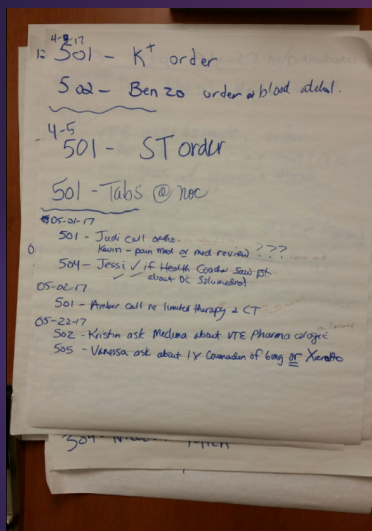 4-2-17
501 - K+ order
502 - Benzo order & blood alcohol.
4-5
501 - ST order
501 - Tabs @ noc
05-01-17
501 - Judi call ortho.
Kevin - pain med or med review ???
504 - Jessi ✓ if Health Coach saw pt
about DC Solumedrol
05-02-17
501 - Amber call re limited therapy & CT
05-22-17
502 - Kristin ask Medina about VTE Pharmacologic
505 - Vanessa ask about 1x Coumadin of 6mg or Xarelto
504 -